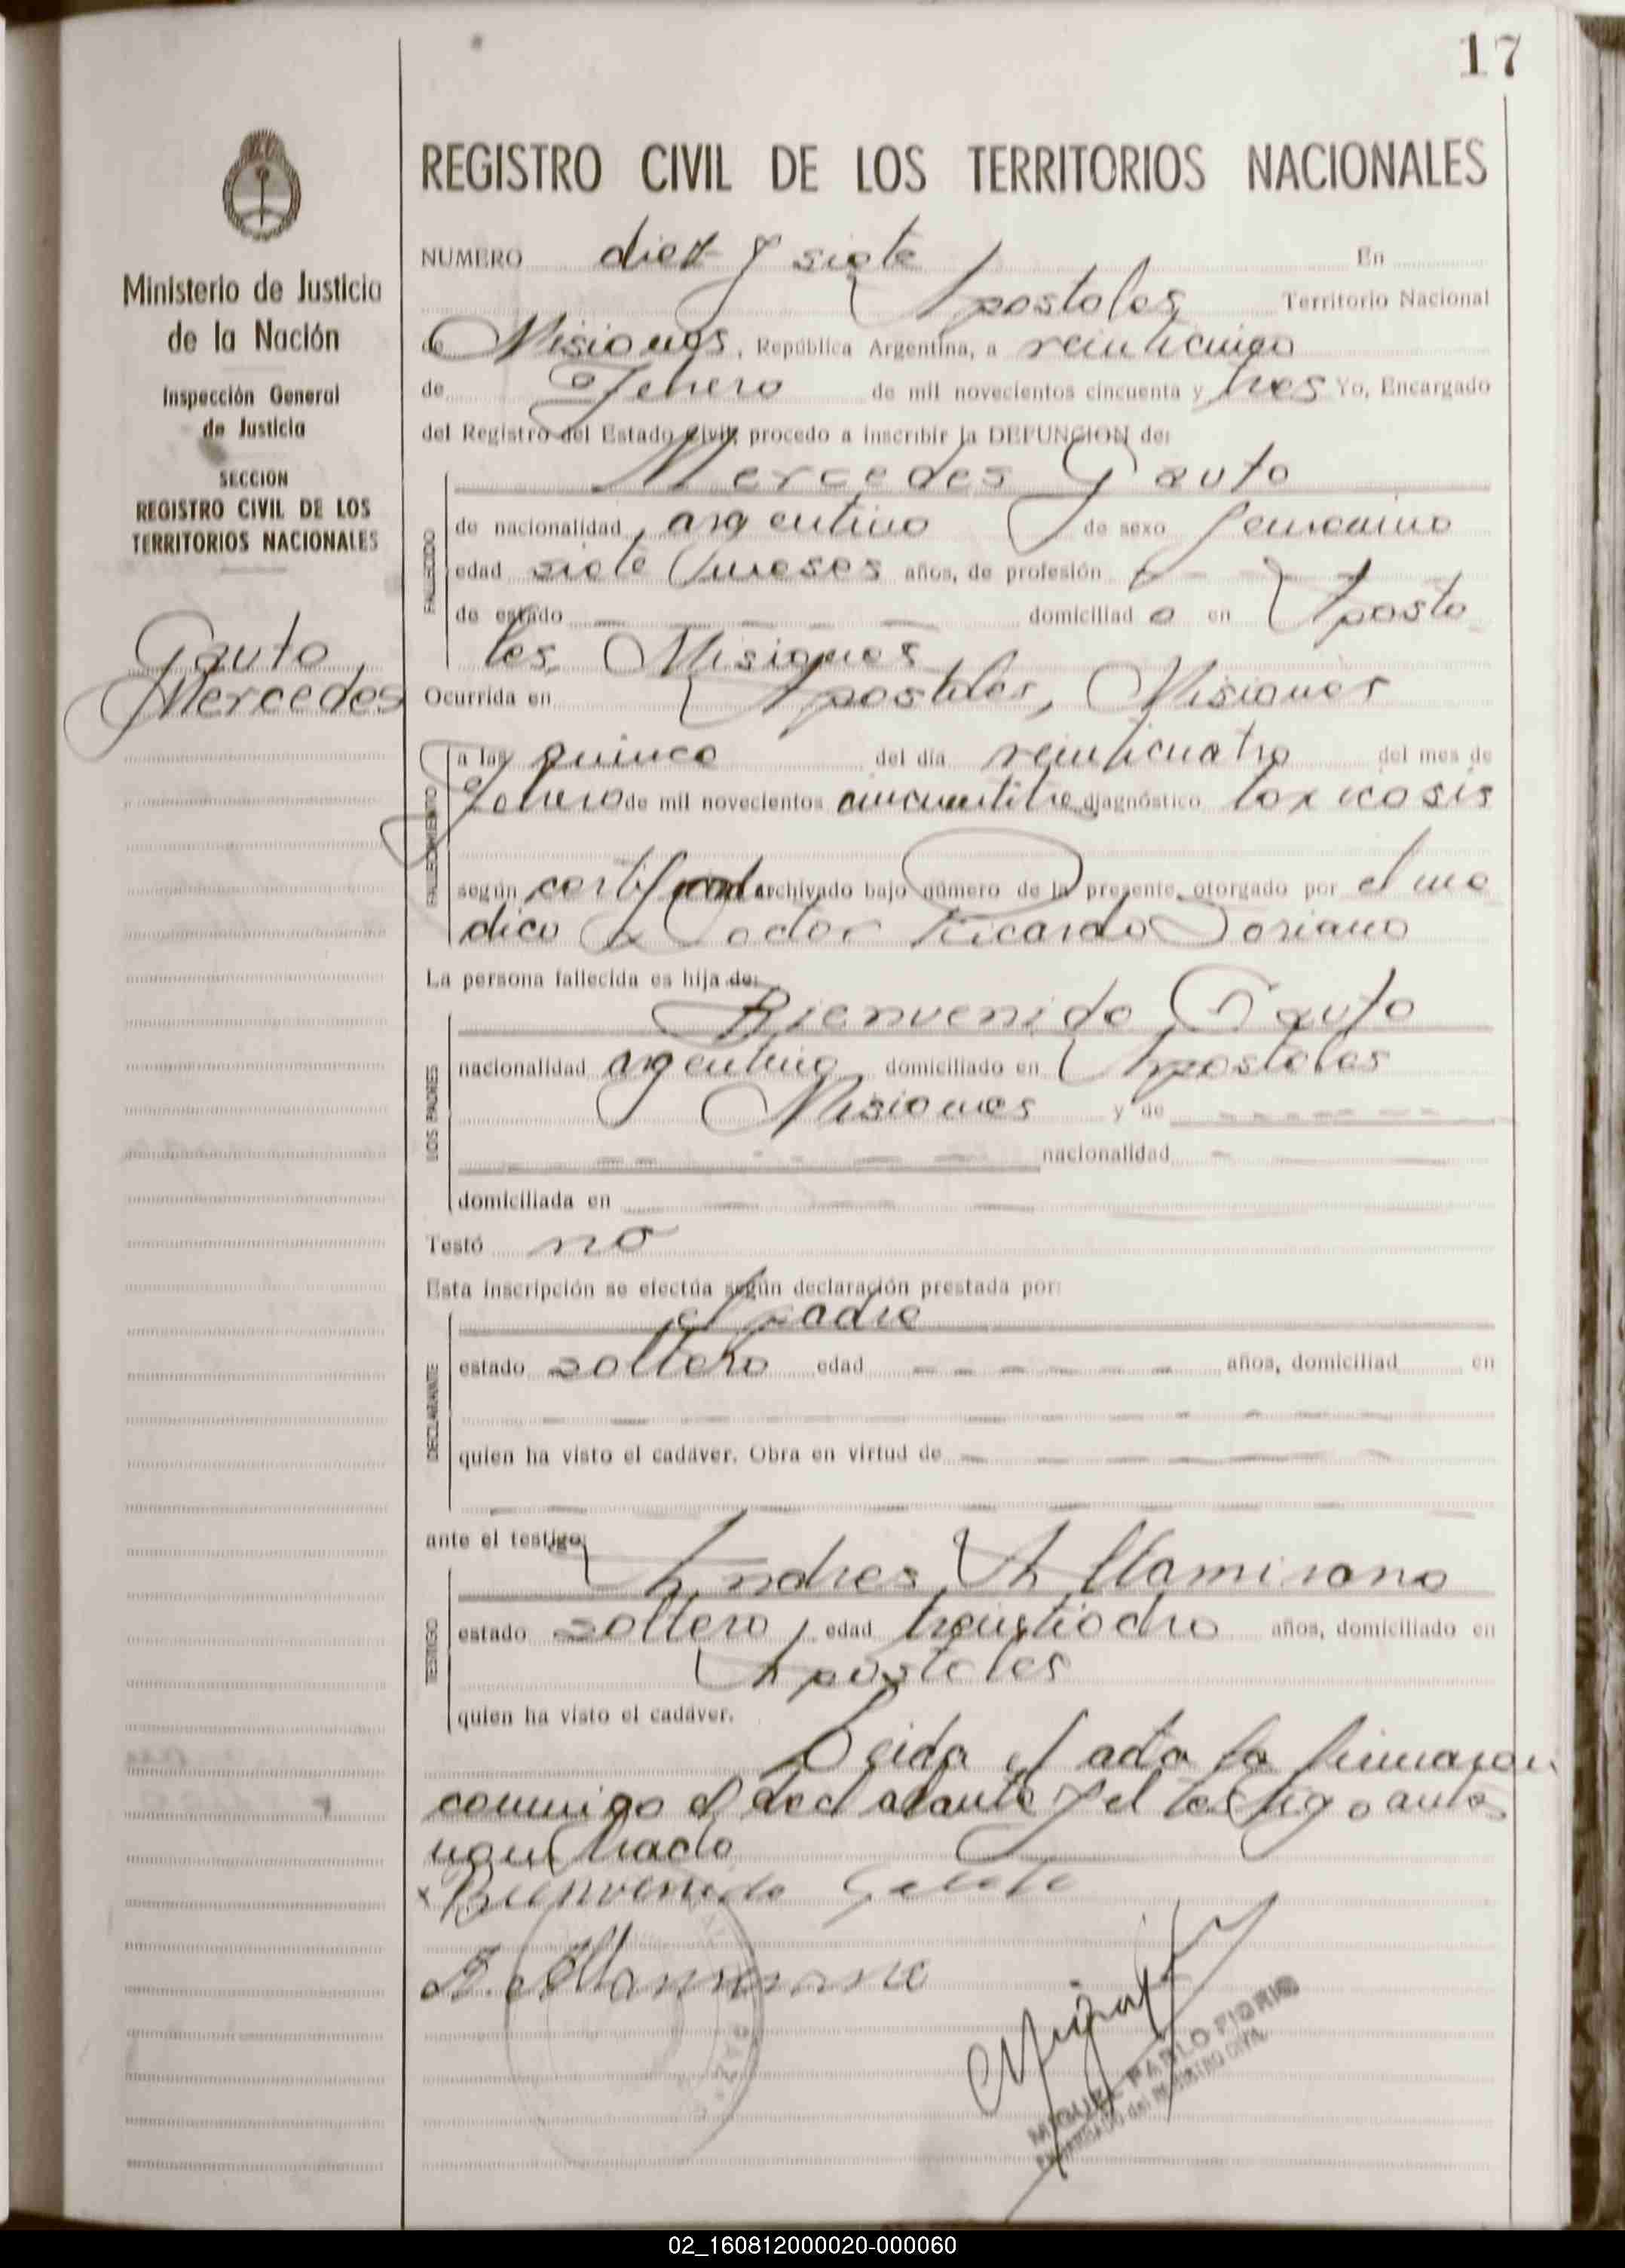 17
REGISTRO CIVIL DE LOS TERRITORIOS NACIONALES
Ministerio de Justicia
de la Nación
Inspección General
de Justicia
SECCION
REGISTRO CIVIL DE LOS
TERRITORIOS NACIONALES
Gauto
Mercedes
NUMERO diez y siete En
Apostoles, Territorio Nacional
de Misiones, República Argentina, a veinticinco
de Febrero de mil novecientos cincuenta y tres Yo, Encargado
del Registro del Estado Civil, procedo a inscribir la DEFUNCION de:
Mercedes Gauto
FALLECIDO
de nacionalidad argentino de sexo femenino
edad siete meses años, de profesión
de estado domiciliad o en Aposto
les, Misiones
Ocurrida en Apostoles, Misiones
FALLECIMIENTO
a las quince del día veinticuatro del mes de
Febrero de mil novecientos cincuentitre diagnóstico toxicosis
según certificado archivado bajo número de la presente, otorgado por el me
dico Doctor Ricardo Soriano
La persona fallecida es hija de:
Bienvenido Gauto
LOS PADRES
nacionalidad argentino domiciliado en Apostoles
Misiones y de
nacionalidad
domiciliada en
Testó no
Esta inscripción se efectúa según declaración prestada por:
el padre
DECLARANTE
estado soltero edad años, domiciliad en
quien ha visto el cadáver. Obra en virtud de
ante el testigo:
Andres Altamirano
TESTIGO
estado soltero, edad treintiocho años, domiciliado en
Apostoles
quien ha visto el cadáver.
Leida el acta la firmaron
conmigo el declarante y el testigo antes
nombrado
x Bienvenido Gauto
A. Altamirano
MIGUEL PABLO FIORIO
ENCARGADO del REGISTRO CIVIL
02_160812000020-000060